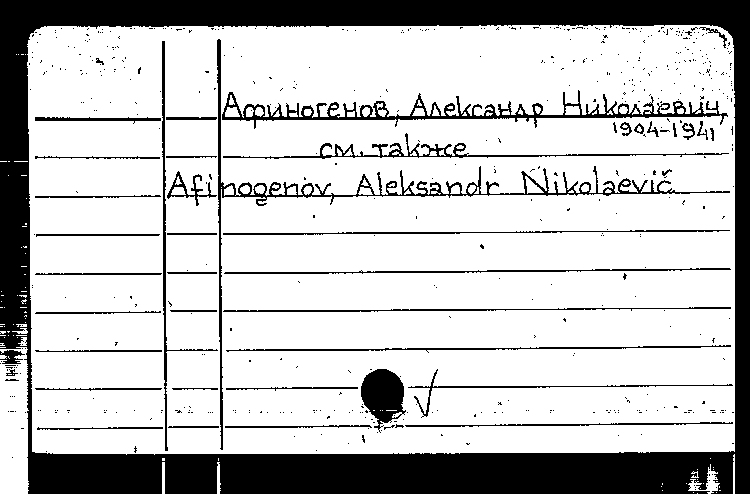 Афиногенов, Александр Николаевич,
1904-1941
см. также
Afinogenov, Aleksandr Nikolaevič